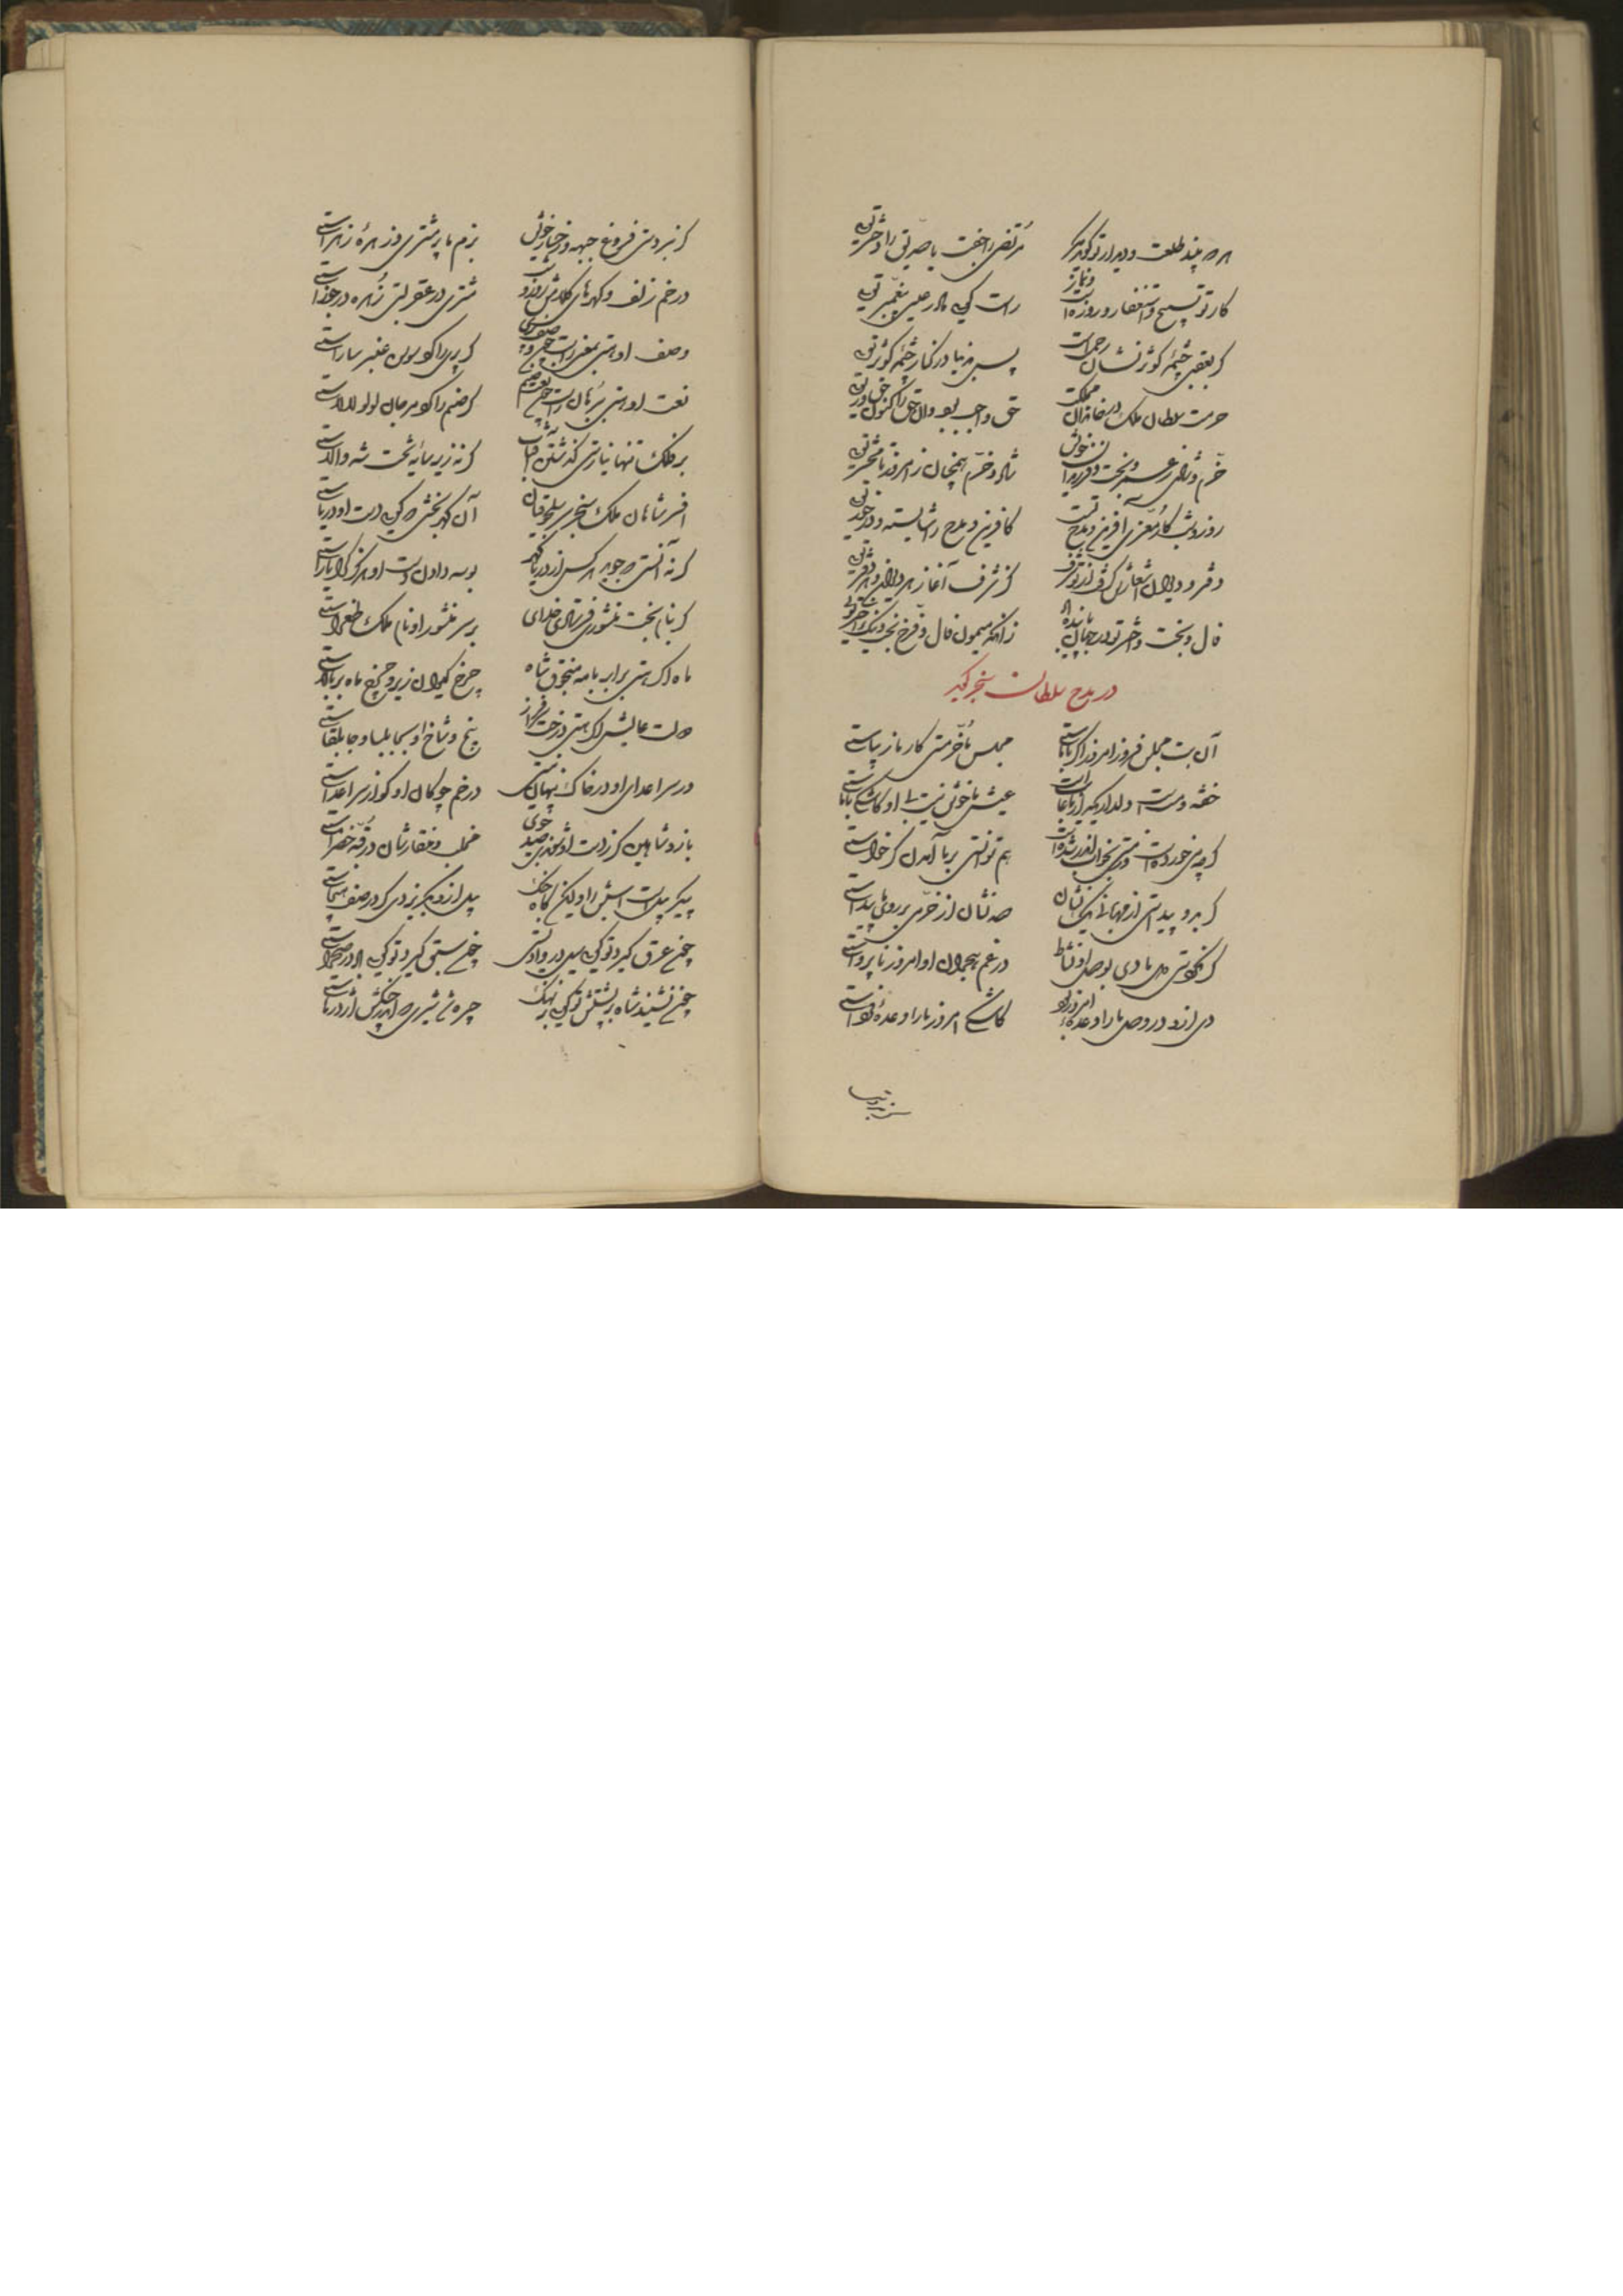 هر که بیند طلعت و دیدار تو گوید مگر مرتضی را جفت یا صدیق را دختر تویی
کار تو تسبیح و استغفار و روزه است و نماز راست گویی مادر عیسی پیغمبر تویی
گر بعقبی چشمه کوثر نشان رحمت است پس بدنیا در کنار چشمه کوثر تویی
حرمت سلطان ملک در خاندان مملکت حق واجب بود و آن حق را کنون درخور تویی
خرم و شادی ز عمر و بخت و فرزندان خویش شاد و خرم همچنان زامروز تا محشر تویی
روز و شب کار معزی آفرین و مدح تست کافرین و مدح را شایسته و درخور تویی
دفتر و دیوان اشعارش گرفت از تو شرف کز شرف آغاز هر دیوان و هر دفتر تویی
فال و بخت و اختر تو در جهان پاینده باد زانکه میمون فال و فرخ بخت و نیک اختر تویی
در مدح سلطان سنجر گوید
آن بت مجلس فروز امروز اگر با ماستی مجلس ما خرمستی کار ما زیباستی
خفته و مست است و دلداریکه یار ما
عیش ما خوش نیست بی او کاشکی با ماستی
گرچه می خورده است و مستی هم توانستی بر ما آمدن گر خواستی
گر برو پیداستی از مهربانی یک نشان صد نشان از خرمی بر روی ما پیداستی
گر نگشتی دل ما دی بوصل او نشاط در غم هجران او امروز ناپرواستی
دی ازو در وصل ما را وعده امروز بود کاشکی امروز ما را وعده فرداستی
گر نبردستی فروغ جبهه و رخسار خویش بزم ما پر مشتری و زهره زهراستی
در خم زلف و گره های کلاهش مشتری در عقربستی زهره در جوزاستی
وصف او هستی بمغز راست گر پری را گوی سوسن عنبر ساراستی
نعت او هستی برهان راست گر صنم را گوی مرجان لولو لالاستی
بر فلک تنها نیارستی گذشتن آفتاب گرنه زیر سایه تخت شه والاستی
افسر شاهان ملک سنجر سر سلجوقیان آن گهر بخشی که گویی دست او دریاستی
گرنه آنستی که جوید هر کس از دریا گهر بوسه دادن دست او
گر بنام بخت منشوری فرستادی خدای بر سر منشور او نام ملک طغراستی
ماه اگر هستی برابر با مه منجوق شاه چرخ کیوان زیر و چرخ ماه بر بالاستی
دولت عالیش اگر هستی درخت سرفراز بیخ و شاخ او بجابلسا و جابلقاستی
ور سر اعدای او در خاک پنهان نیستی در خم چوگان او گوی از سر اعداستی
باز و شاهین گر ز دست او شدندی صید جوی مخلب و منقارشان در قبه خضراستی
پیکر پیلست اسبش را ولیکن گاه جنگ پیل ازو بگریزدی گر در صف هیجاستی
چون عرق گیرد تو گویی سیل در وادیستی چون سبق گیرد تو گویی باد در صحراستی
چون نشیند شاه بر پشتش تو گویی بر نهنگ چیره شیری که اندر چنگش اژدرهاستی